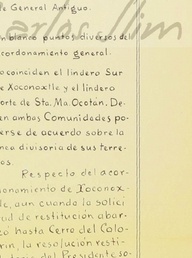 e General Antiguo.
Carlos Slim
n blanco puntos diversos de
cordonamiento general.
o coinciden el lindero Sur
e Xoconoxtle y el lindero
orte de Sta. Ma. Ocotan. De
en ambas Comunidades po-
erse de acuerdo sobre la
nea divisoria de sus terre-
os.
Respecto del acor-
onamiento de Xoconox-
le, aun cuando la solici
ud de restitución abar-
ó hasta Cerro del Colo-
rín, la resolución resti-
Presidente so-